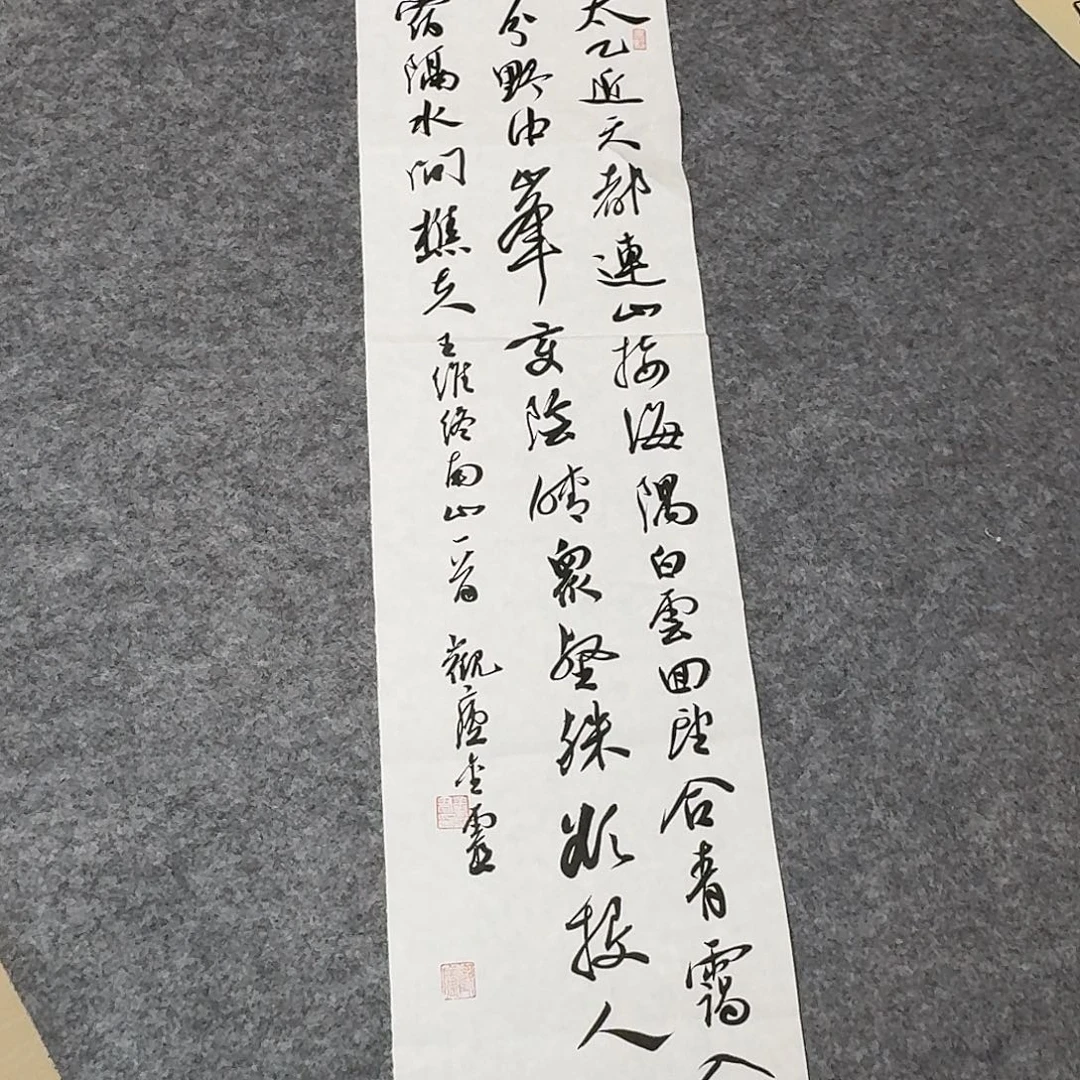 太乙近天都連山接海隅白雲回望合青靄入
分野中峯變陰晴眾壑殊欲投人
宿隔水問樵夫王維終南山一首觀